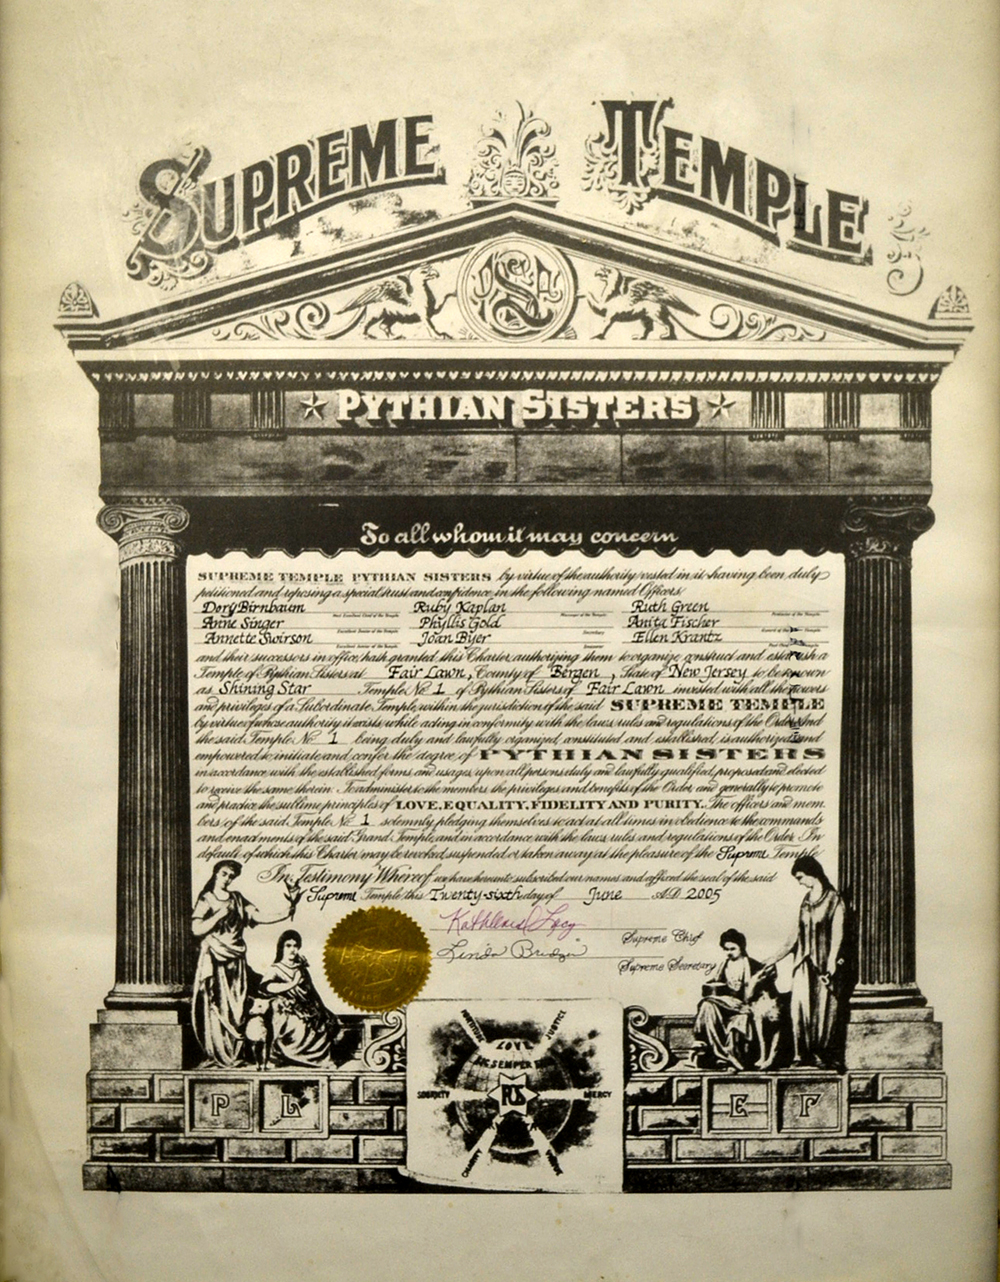 SUPREME TEMPLE
PYTHIAN SISTERS
To all whom it may concern
SUPREME TEMPLE PYTHIAN SISTERS by virtue of the authority vested in it having been duly
petitioned and reposing a special trust and confidence in the following named Officers
Dory Birnbaum Ruby Kaplan Ruth Green
Anne Singer Phyllis Gold Anita Fischer
Annette Swirson Joan Byer Ellen Krantz
and their successors in office, hath granted this Charter authorizing them to organize construct and establish a
Temple of Pythian Sisters at Fair Lawn, County of Bergen, State of New Jersey to be known
as Shining Star Temple No 1 of Pythian Sisters of Fair Lawn invested with all the Powers
and privileges of a Subordinate Temple, within the jurisdiction of the said SUPREME TEMPLE
by virtue of whose authority it exists while acting in conformity with the laws, rules and regulations of the Order. And
the said Temple No 1 being duly and lawfully organized, constituted and established, is authorized and
empowered to initiate and confer the degree of PYTHIAN SISTERS
in accordance with the established forms and usages, upon all persons duly and lawfully qualified, proposed and elected
to receive the same therein. To administer to the members the privileges and benefits of the Order, and generally to promote
and practice the sublime principles of LOVE, EQUALITY, FIDELITY AND PURITY. The officers and mem
bers of the said Temple No 1 solemnly pledging themselves to act at all times in obedience to the commands
and enactments of the said Grand Temple, and in accordance with the laws, rules and regulations of the Order. In
default of which this Charter may be revoked, suspended or taken away at the pleasure of the Supreme Temple
In Testimony Whereof we have hereunto subscribed our names and affixed the seal of the said
Supreme Temple this Twenty-sixth day of June A.D. 2005
Supreme Chief
Linda
Supreme Secretary
FORTITUDE JUSTICE
LOVE
SEMPER
SOBRIETY MERCY
P L E F